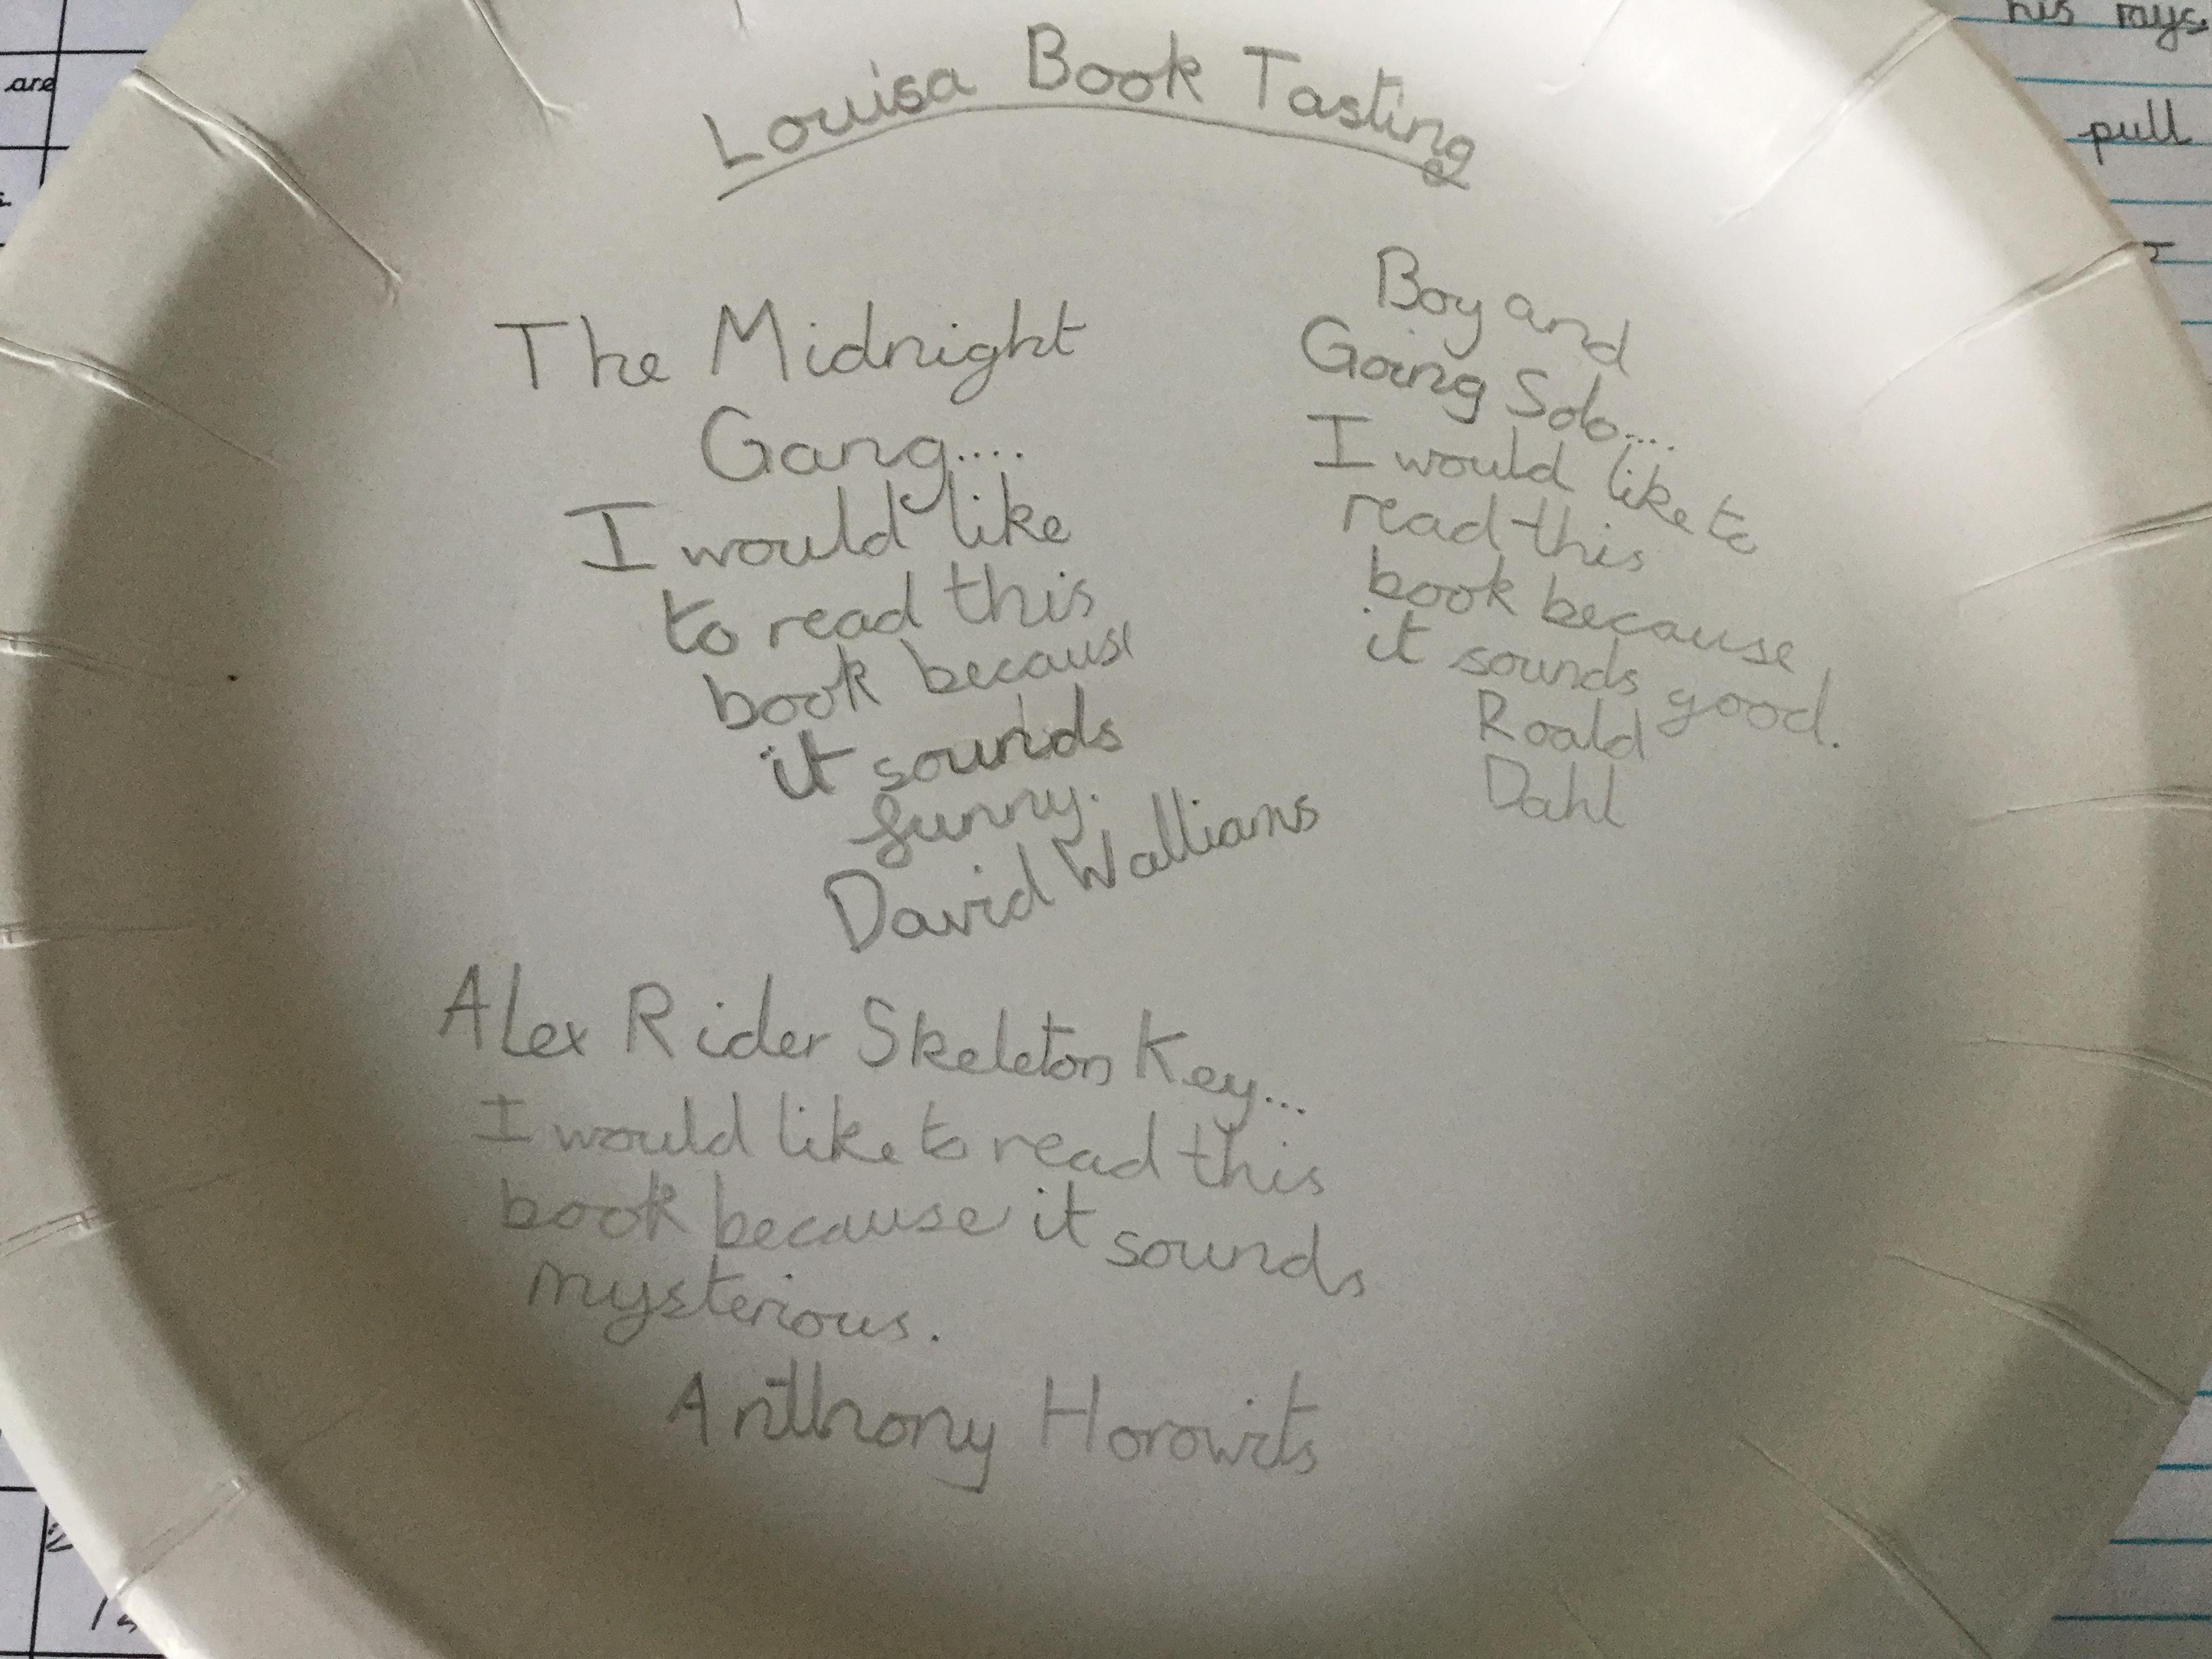 Louisa Book Tasting
The Midnight
Gang....
I would like
to read this
book because
it sounds
funny.
David Walliams
Boy and
Going Solo....
I would like to
read this
book because
it sounds good.
Roald
Dahl
Alex Rider Skeleton Key...
I would like to read this
book because it sounds
mysterious.
Anthony Horowits
are
his
pull
I